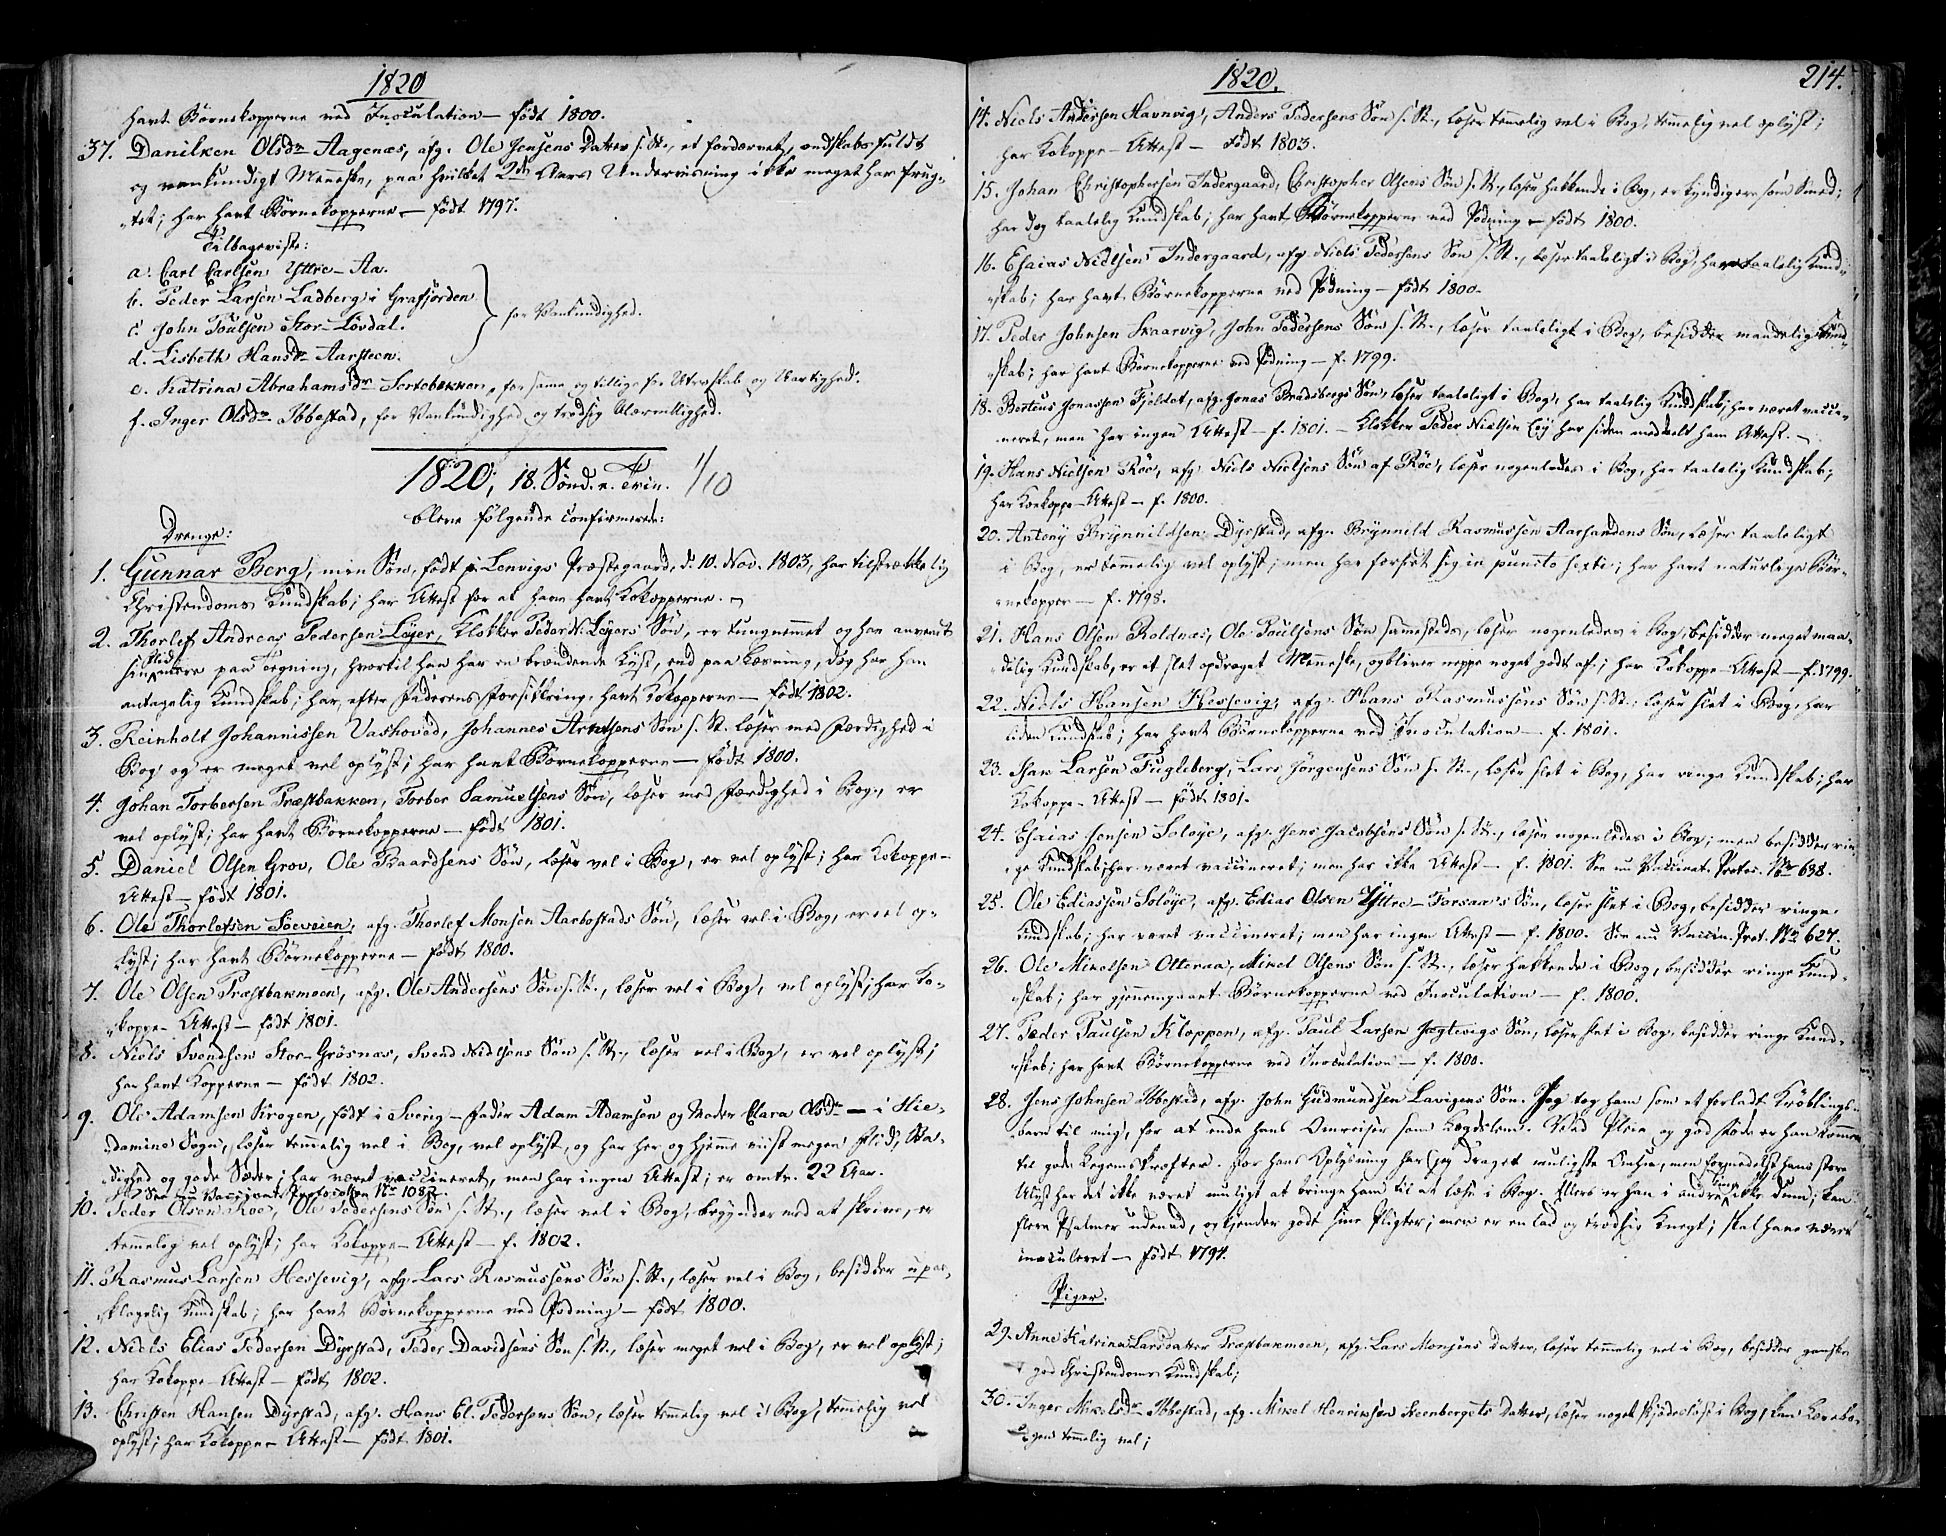 1820
havt Börnekopperne ved Inoculation — født 1800.
37. Daniken Olsdr Aagenæs, afg. Ole Jensens Datter s. St., et fordærvet, ondskabsfuldt
og vankundigt Menneske, paa hvilket 2de Aars Underviisning ikke meget har frug-
tet; har havt Börnekopperne — født 1797.
Tilbageviste:
a. Carl Carlsen Yttre-Aa.
b. Peder Larsen Ladberg i Grafjorden
c. John Poulsen Stor-Lövdal.
d. Lisbeth Hansdr Aarsteen.
for Vankundighed.
e. Katrina Abrahamsdr Sortebakken, for samme og tillige for Uterskab og Uartighed.
f. Inger Olsdr Ibbestad, for Vankundighed og trodsig Uærvillighed.
1820, 18. Sönd. e. Trin. 1/10
bleve følgende confirmerede:
Drenge:
1. Gunnar Berg, min Sön, født p. Lenvigs Præstegaard, d. 10. Nov. 1803, har tilstrækkelig
Christendoms Kundskab; har Attest for at have havt Kokopperne.
2. Thorlef Andreas Pedersen Löyer, Klokker Peder N. Löyers Sön, er tungnemmet og har anvendt
sin Flid mere paa Tegning, hvortil han har en brændende Lyst, end paa Læsning, dog har han
antagelig Kundskab; har, efter Faderens Forsikkring, havt Kokopperne — født 1802.
3. Reinholt Johannissen Vashoved, Johannes Arntsens Sön s. St. læser med Færdighed i
Bog og er meget vel oplyst; har havt Börnekopperne — født 1800.
4. Johan Torbersen Præstbakken, Torber Samuelsens Sön, læser med Færdighed i Bog, er
vel oplyst; har havt Börnekopperne — født 1801.
5. Daniel Olsen Grov, Ole Baardsens Sön, læser vel i Bog, er vel oplyst; har Kokoppe-
Attest — født 1801.
6. Ole Thorlefsen Söeveien, afg. Thorlef Monsen Aarbostads Sön, læser vel i Bog, er vel op-
lyst; har havt Börnekopperne — født 1800.
7. Ole Olsen Præstbakmoen, afg. Ole Andersens Sön s. St., læser vel i Bog, vel oplyst; har Ko-
koppe-Attest — født 1801.
8. Niels Svendsen Stor-Grösnæs, Svend Nielsens Sön s. St., læser vel i Bog, er vel oplyst;
har havt Kopperne — født 1802.
9. Ole Adamsen Krogen, født i Sverig — Fader Adam Adamsen og Moder Clara Olsdr — i Hie-
damine Sogn, læser temmelig vel i Bog, vel oplyst, og har her og hjemme viist megen Flid, Sta-
dighed og gode Sæder; har været vaccineret, men har ingen Attest; er omtr. 22 Aar.
See nu Vaccinat. Protocollen No 1082.
10. Peder Olsen Röe, Ole Pedersens Sön s. St., læser vel i Bog, begynder med at skrive, er
temmelig vel oplyst; har Kokoppe-Attest — f. 1802.
11. Rasmus Larsen Hessevig, afg. Lars Rasmussens Sön s. St., læser vel i Bog, besidder upaa-
klagelig Kundskab; har havt Börnekopperne ved Podning — født 1800.
12. Niels Elias Pedersen Dyrstad, Peder Davidsens Sön s. St., læser meget vel i Bog, er vel oplyst;
har Kokoppe-Attest — født 1802.
13. Christen Hansen Dyrstad, afg. Hans El. Pedersens Sön, læser temmelig vel i Bog, temmelig vel
oplyst; har Kokoppe-Attest — født 1801.
1820.
214.
14. Niels Andersen Havnvig, Anders Pedersens Sön s. St., læser temmelig vel i Bog, temmelig vel oplyst;
har Kokoppe-Attest — født 1803.
15. Johan Christophersen Indergaard, Christopher Olsens Sön s. St., læser hakkende i Bog, er kyndigere som Smed;
har dog taalelig Kundskab; har havt Börnekopperne ved Podning — født 1800.
16. Esaias Nielsen Indergaard, afg. Niels Pedersens Sön s. St., læser taaleligt i Bog, har taalelig Kund-
skab; har havt Börnekopperne ved Podning — født 1800.
17. Peder Johnsen Skaarvig, John Pedersens Sön s. St., læser taaleligt i Bog, besidder maadelig Kund-
skab; har havt Börnekopperne ved Podning — f. 1799.
18. Berteus Jonassen Fjeldet, afg. Jonas Bradsbergs Sön, læser taaleligt i Bog, har taalelig Kundskab; har været vacci-
neret, men har ingen Attest — f. 1801. — Klokker Peder Nielsen Löy har siden meddeelt ham Attest.
19. Hans Nielsen Röe, afg. Niels Nielsens Sön af Röe, læser nogenledes i Bog, har taalelig Kundskab;
har Kokoppe-Attest — f. 1800.
20. Antony Brynnildsen Dyrstad, afgn. Brynnild Rasmussen Aarsandens Sön, læser taaleligt
i Bog, er temmelig vel oplyst; men har forseet sig in puncto sexti; har havt naturlige Bör-
nekopper — f. 1798.
21. Hans Olsen Roldnæs, Ole Poulsens Sön samesteds, læser nogenledes i Bog, besidder meget maa-
delig Kundskab, er et slet opdraget Menneske, og bliver neppe noget godt af; har Kokoppe-Attest — f. 1799.
22. Niels Hansen Hessevig, afg. Hans Rasmussens Sön s. St., læser slet i Bog, har
liden Kundskab; har havt Börnekopperne ved Inoculation — f. 1801.
23. Isak Larsen Fugleberg, Lars Jörgensens Sön s. St., læser slet i Bog, har ringe Kundskab; har
Kokoppe-Attest — født 1801.
24. Esaias Jensen Solöye, afg. Jens Jacobsens Sön s. St., læser nogenledes i Bog; men besidder rin-
ge Kundskab; har været vaccineret; men har ikke Attest — f. 1801. See nu Vaccinat. Protoc. No 638.
25. Ole Ediassen Solöye, afg. Edias Olsen Yttre-Forsaa's Sön, læser slet i Bog, besidder ringe
Kundskab; har været vaccineret; men har ingen Attest — f. 1800. See nu Vaccin. Prot. No 627.
26. Ole Mikelsen Otteraa, Mikel Olsens Sön s. St., læser hakkende i Bog, besidder ringe Kund-
skab; har gjennemgaaet Börnekopperne ved Inoculation — f. 1800.
27. Peder Paulsen Kloppen, afg. Paul Larsen Jegtevigs Sön, læser slet i Bog, besidder ringe Kund-
skab; har havt Börnekopperne ved Inoculation — f. 1800.
28. Jens Johnsen Ibbestad, afg. John Gudmundsen Lavigens Sön. Jeg tog ham som et forladt Kröblings-
barn til mig, for at ende hans Omreiser som Lægdslem. Ved Pleie og god Föde er han kommen
til gode Legemskræfter. For hans Oplysning har jeg draget muligste Omsorg, men formedelst hans store
Ulyst har det ikke været muligt at bringe ham til at læse i Bog. Ellers er han i andre Ting ikke dum; kan
flere Psalmer udenad, og kjender godt sine Pligter; men er en lad og trodsig Knegt; skal have været
inoculeret — født 1794.
Piger.
29. Anne Katrina Larsdatter Præstbakmoen, afg. Lars Monsens Datter, læser temmelig vel i Bog, besidder ganske
god Christendoms Kundskab;
30. Inger Mikelsdr Ibbestad, afg. Mikel Henriksen Steenbergets Datter, læser noget skjödeslöst i Bog, kan Lærebo-
gen temmelig vel;